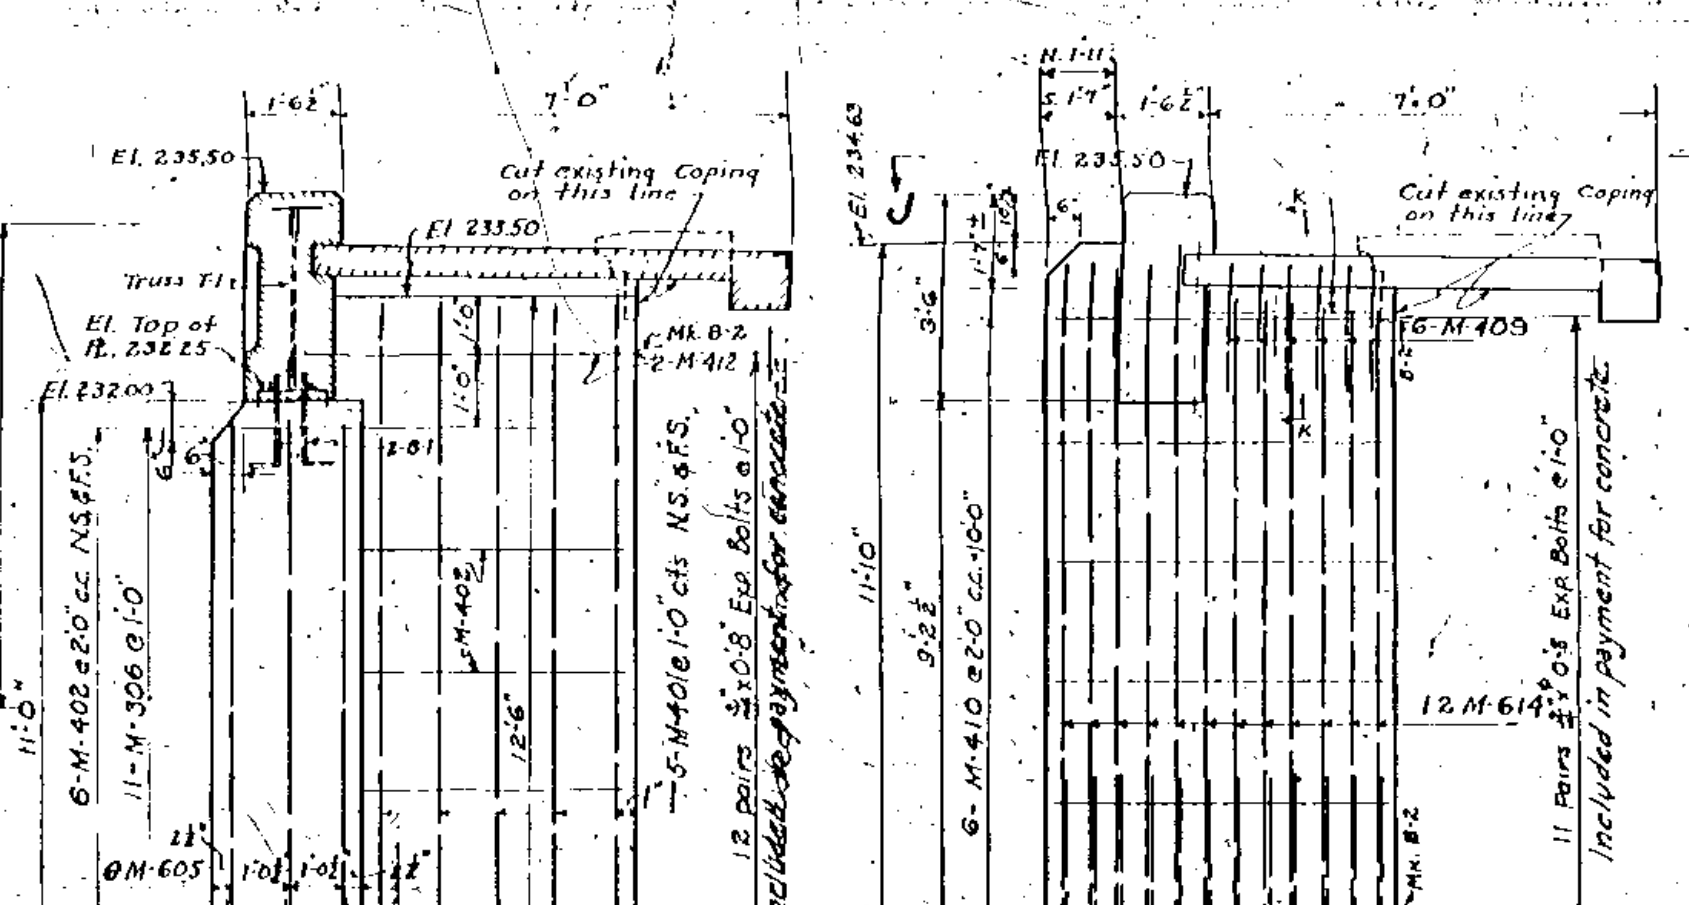 1'-6½"
7'-0"
El. 235.50
Cut existing Coping
on this line
El. 233.50
Truss T-1
El. Top of
PL. 232.25
El. 232.00
Mk. B-2
2-M-412
1'-0"
1'-0"
6"
6"
2-B-1
6-M-402 @ 2'-0" c.c. N.S. & F.S.
11-M-306 @ 1'-0"
11'-0"
5-M-402
12'-6"
5-M-401 @ 1'-0" cts N.S. & F.S.
12 pairs x 0'-8" Exp. Bolts @ 1'-0"
payment for concrete
1"
M-605
1'-0½"
1'-0½"
N. 1'-11"
S. 1'-7"
1'-6½"
7'-0"
El. 234.63
El. 235.50
Cut existing Coping
on this line
J
K
6"
3'-6"
6-M-409
B-2
K
11'-10"
9'-2½"
6-M-410 @ 2'-0" c.c. = 10'-0"
12 M-614
11 Pairs x 0'-8 Exp. Bolts @ 1'-0"
Included in payment for concrete
Mk. B-2